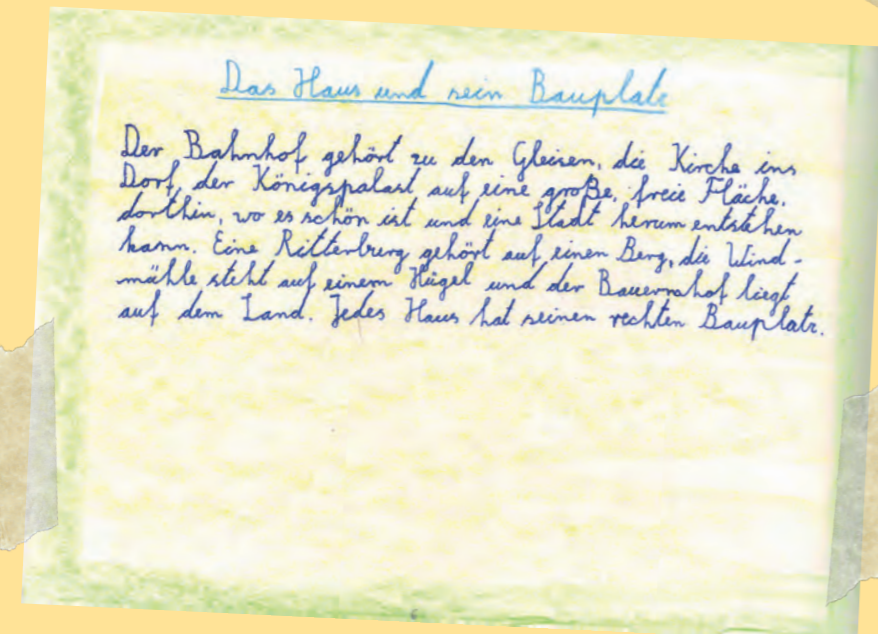 Das Haus und sein Bauplatz
Der Bahnhof gehört zu den Gleisen, die Kirche ins
Dorf, der Königspalast auf eine große, freie Fläche,
dorthin, wo es schön ist und eine Stadt herum entstehen
kann. Eine Ritterburg gehört auf einen Berg, die Wind-
mühle steht auf einem Hügel und der Bauernhof liegt
auf dem Land. Jedes Haus hat seinen rechten Bauplatz.
6